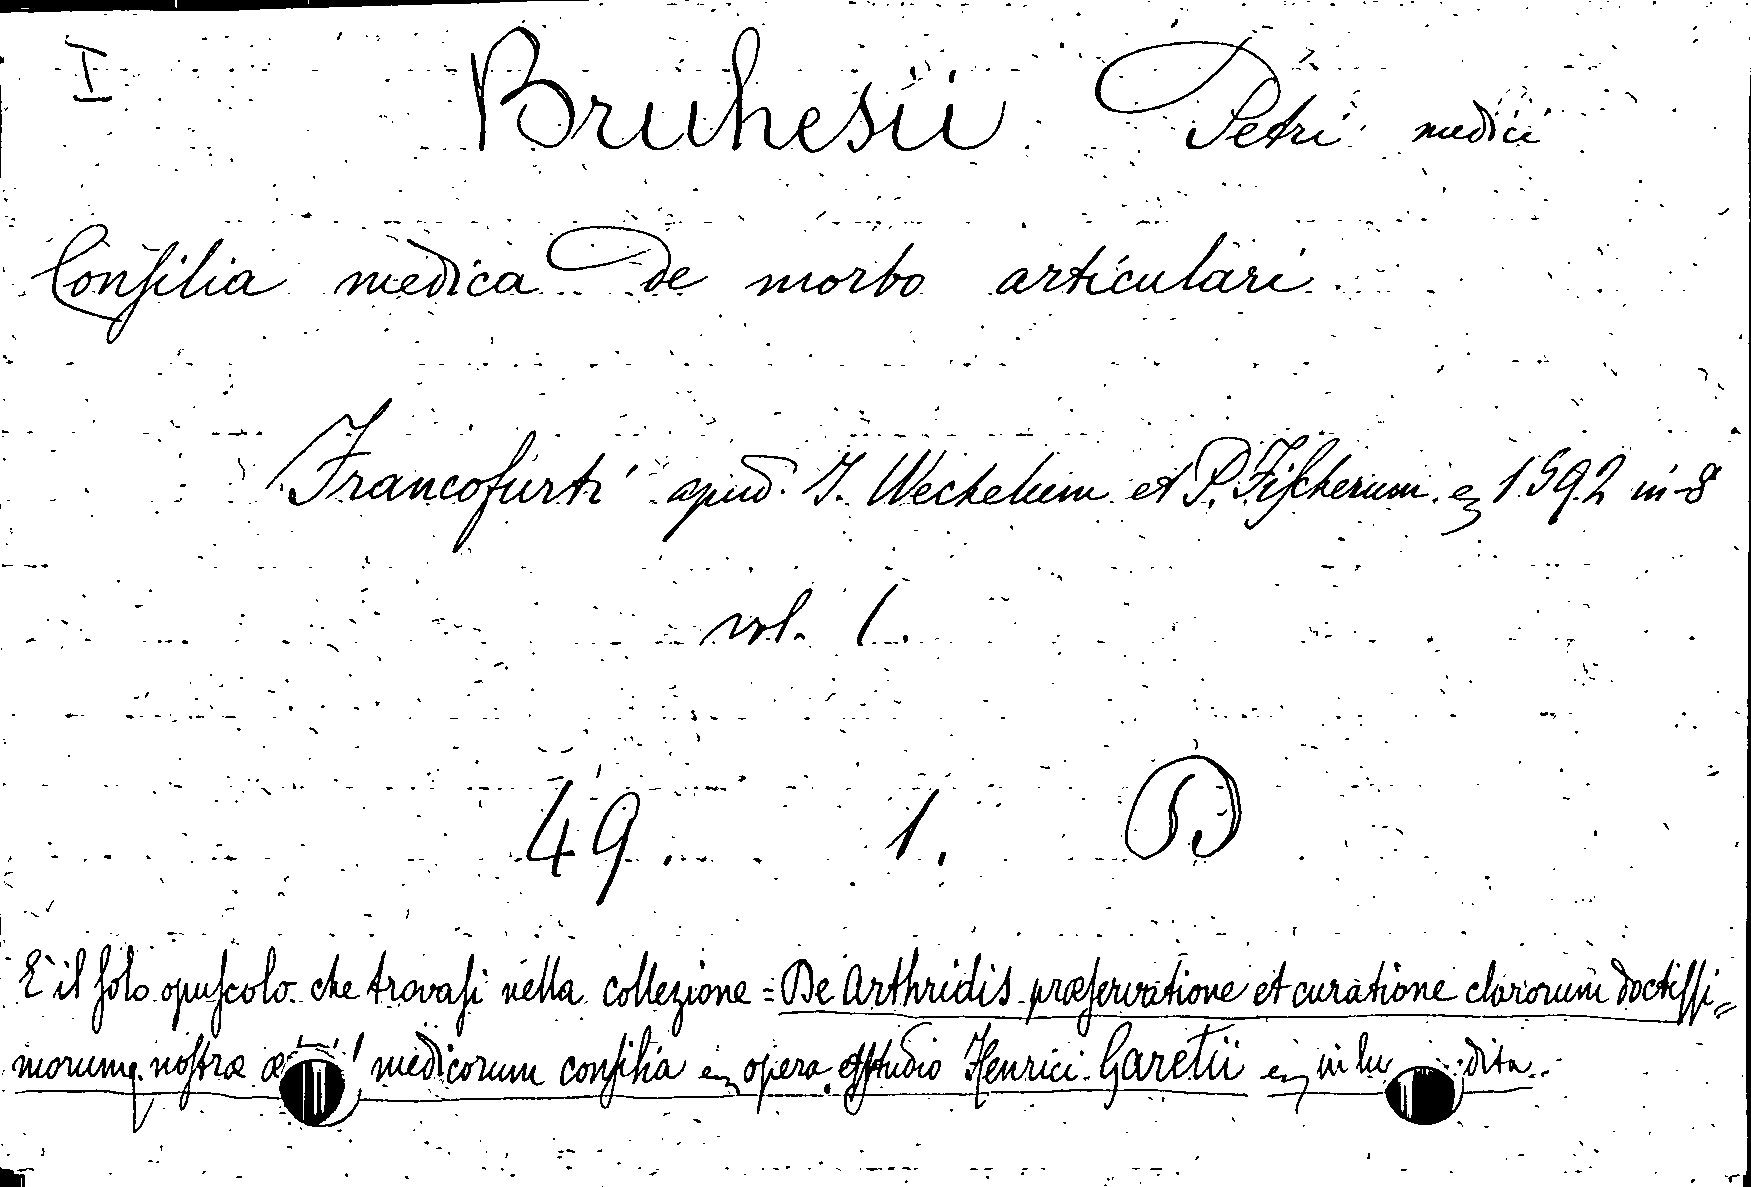 I Bruhesii Petri medici
Consilia medica de morbo articulari
Francofurti apud J. Wechelum et P. Fischerum 1592 in-8
vol. 1.
49. 1. D
E' il solo opuscolo che trovasi nella collezione = De Arthridis præservatione et curatione clarorum doctissi=
morumq. nostræ medicorum consilia opera et studio Henrici Garetii in